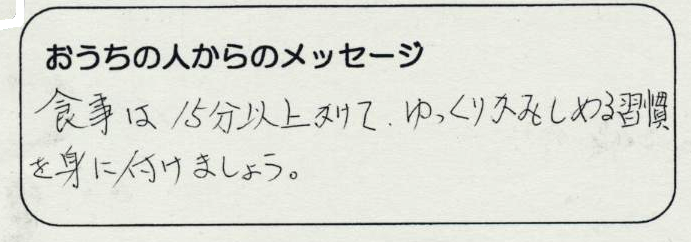 おうちの人からのメッセージ
食事は15分以上かけて、ゆっくりかみしめる習慣
を身に付けましょう。